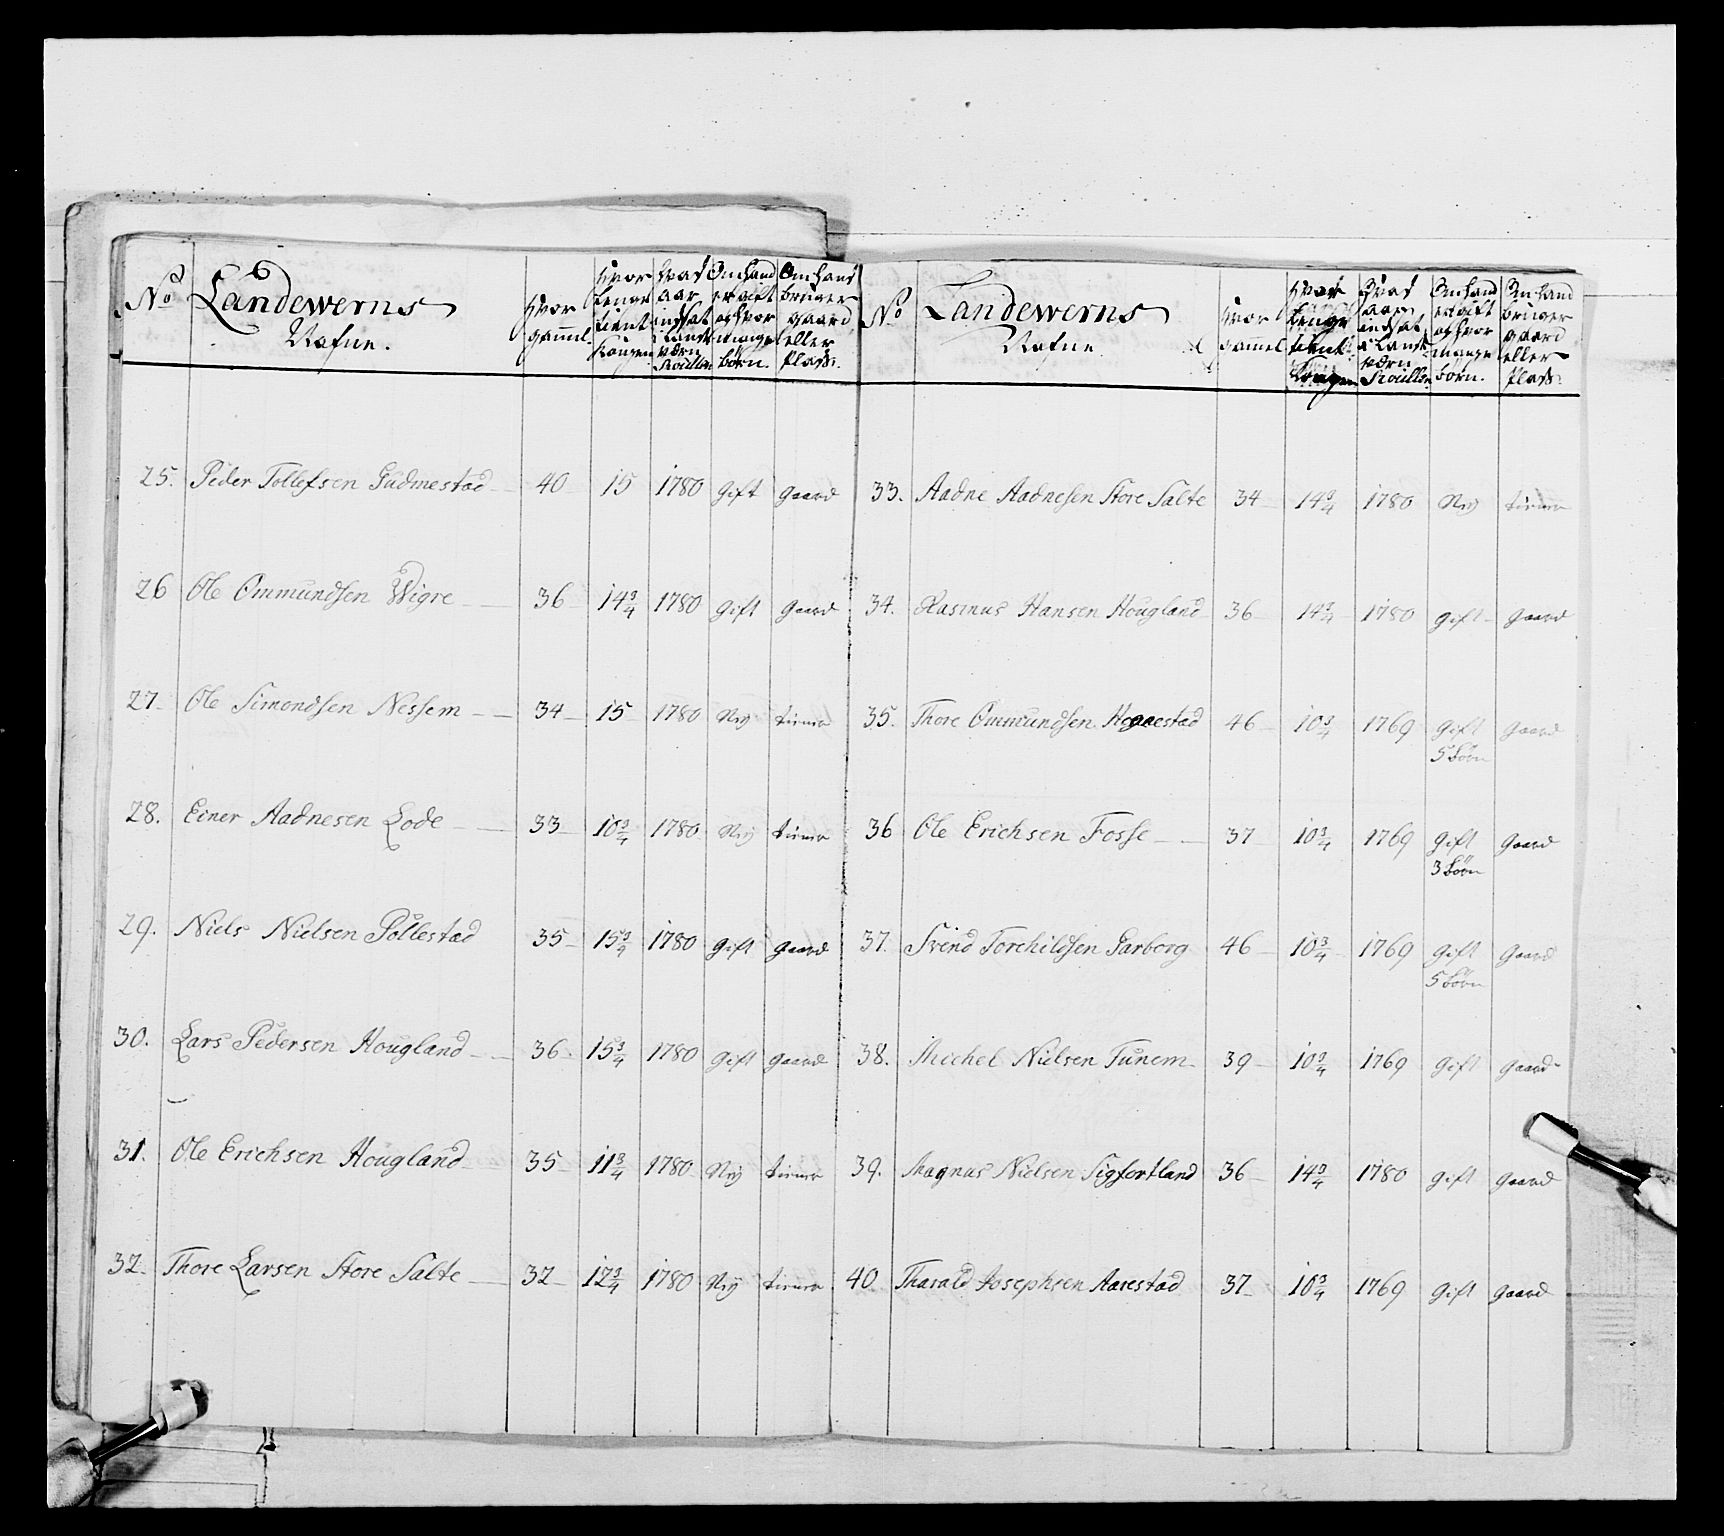 No
Landewerns
Nafne.
Hvor gammel.
Hvor lenge tient Kongen
Hvad aar indsat i Land værn Roullen
Om hand er gift og hvor mange børn.
Om hand bruger gaard eller Plads.
25. Peder Tollefsen Gudmestad 40 15 1780 gift gaard
26 Ole Ommundsen Wigre 36 14 3/4 1780 gift gaard
27. Ole Simondsen Nessem 34 15 1780 Nej tiener
28. Einer Aadnesen Lode 33 10 3/4 1780 Nej tiener
29. Niels Nielsen Pollestad 35 15 3/4 1780 gift gaard
30. Lars Pedersen Hougland 36 15 3/4 1780 gift gaard
31. Ole Erichsen Hougland 35 11 3/4 1780 Nej tiener
32. Thore Larsen Store Salte 32 12 3/4 1780 Nej tiener
No
Landewerns
Nafne
Hvor gammel
Hvor lenge tient Kongen
Hvad aar indsat i Land værn Roullen
Om hand er gift og hvor mange børn.
Om hand bruger gaard eller Plads.
33. Aadne Aadnesen Store Salte 34 14 3/4 1780 Nej tiener
34. Rasmus Hansen Hougland 36 14 3/4 1780 gift gaard
35. Thore Ommundsen Hognestad 46 10 3/4 1769 gift gaard
5 børn
36 Ole Erichsen Fosse 37 10 3/4 1769 gift gaard
3 børn
37. Svend Torchildsen Garborg 46 10 3/4 1769 gift gaard
5 børn
38. Michel Nielsen Tunem 39 10 3/4 1769 gift gaard
39. Magnus Nielsen Sigfortland 36 14 3/4 1780 gift gaard
40. Tharald Josephsen Aarestad 37 10 3/4 1769 gift gaard